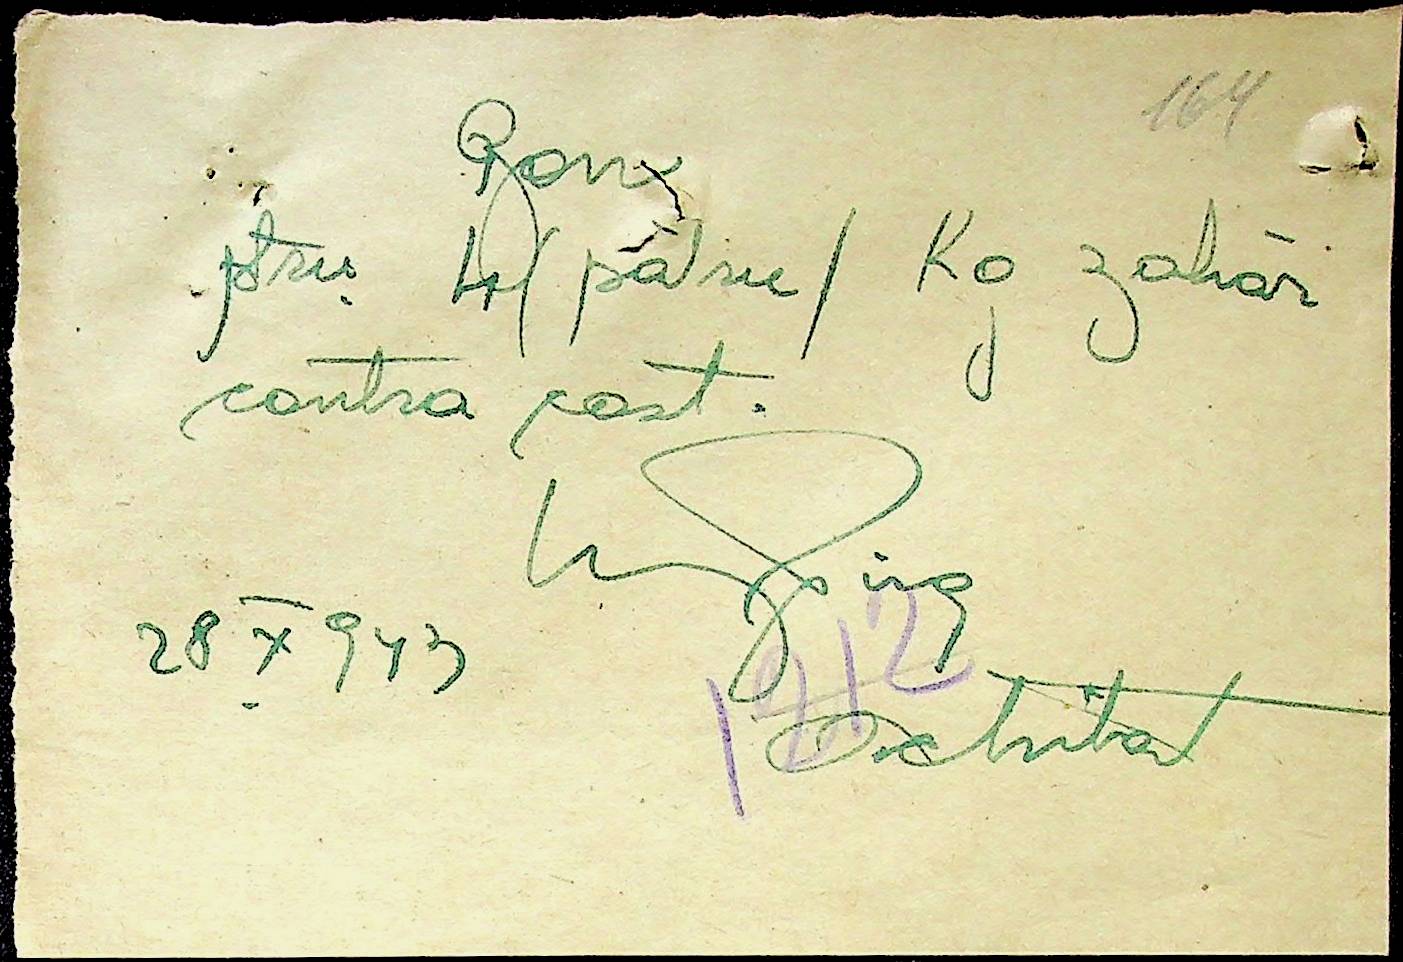 164
Bon
ptru. 4 /patru/ Kg zahăr
contra cost.
ing
28 X 943
1912
Achitat